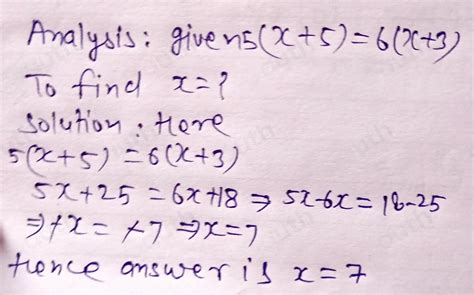 Analysis: given 5(x+5)=6(x+3)
To find x=?
Solution: Here
5(x+5) =6(x+3)
5x+25 =6x+18 ⇒ 5x-6x=18-25
⇒ -x= -7 ⇒x=7
Hence answer is x=7